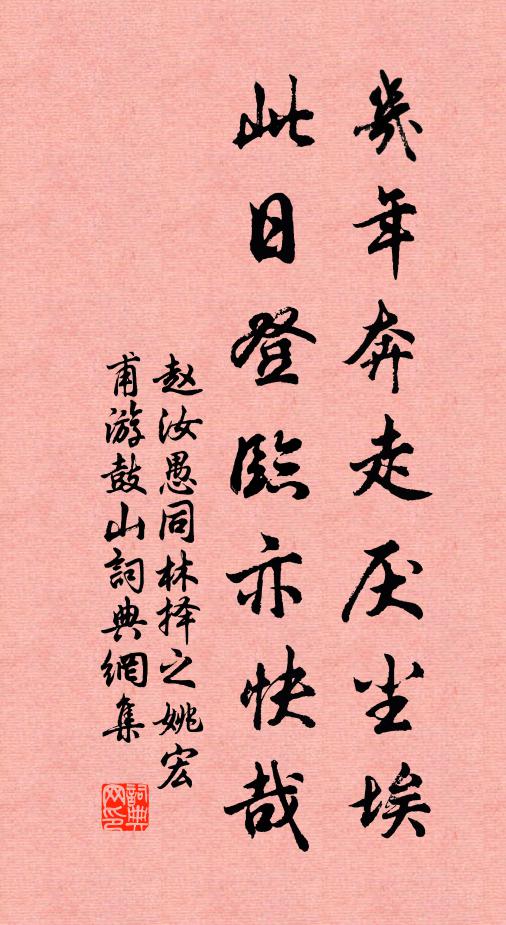 幾年奔走厌尘埃
此日登臨亦快哉
赵汝愚同林择之姚宏
甫游鼓山詞典網集
詞典
网印